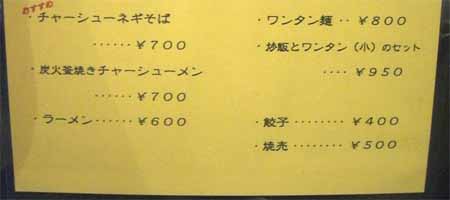 おすすめ
・チャーシューネギそば
‥‥‥￥７００
・炭火釜焼きチャーシューメン
‥‥‥￥７００
・ラーメン‥‥‥￥６００
・ワンタン麺‥￥８００
・炒飯とワンタン（小）のセット
‥‥￥９５０
・餃子‥‥‥‥￥４００
・焼売‥‥‥‥￥５００